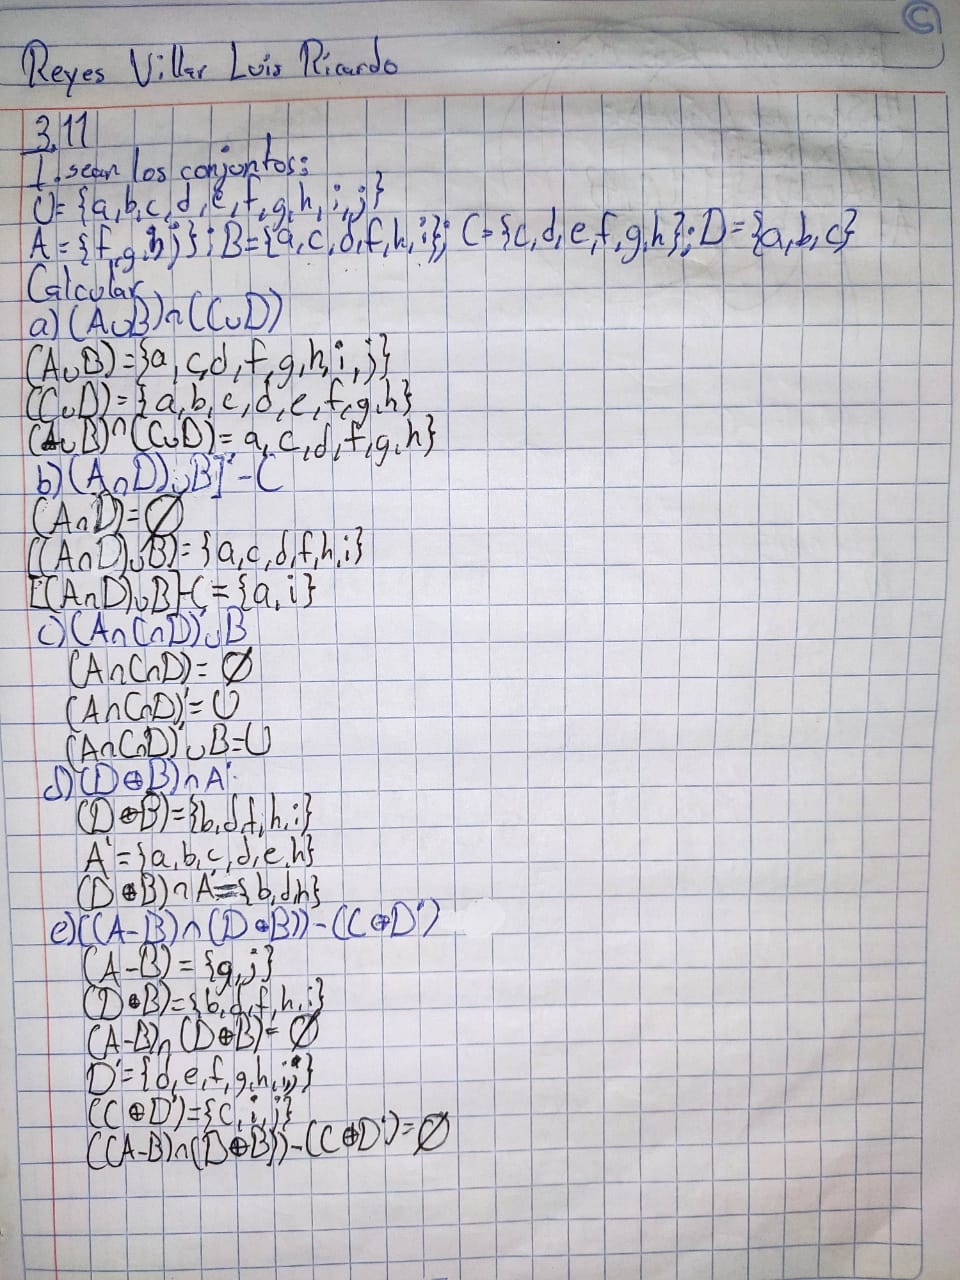 C
Reyes Villar Luis Ricardo
3.11
1. sean los conjuntos:
U={a,b,c,d,e,f,g,h,i,j}
A={f,g,i,j}; B={a,c,d,f,h,i}; C={c,d,e,f,g,h}; D={a,b,c}
Calcular
a) (A∪B)∩(C∪D)
(A∪B)={a,c,d,f,g,h,i,j}
(C∪D)={a,b,c,d,e,f,g,h}
(A∪B)∩(C∪D)=a,c,d,f,g,h}
b) (A∩D)∪B]'-C
(A∩D)=∅
((A∩D)∪B)={a,c,d,f,h,i}
[(A∩D)∪B]-C={a,i}
c) (A∩C∩D)'∪B
(A∩C∩D)=∅
(A∩C∩D)'=U
(A∩C∩D)'∪B=U
d) (D⊕B)∩A'
(D⊕B)={b,d,f,h,i}
A'={a,b,c,d,e,h}
(D⊕B)∩A'={b,d,h}
e) ((A-B)∩(D⊕B))-(C⊕D')
(A-B)={g,j}
(D⊕B)={b,d,f,h,i}
(A-B)∩(D⊕B)=∅
D'={d,e,f,g,h,i,j}
(C⊕D')={c,i,j}
((A-B)∩(D⊕B))-(C⊕D')=∅